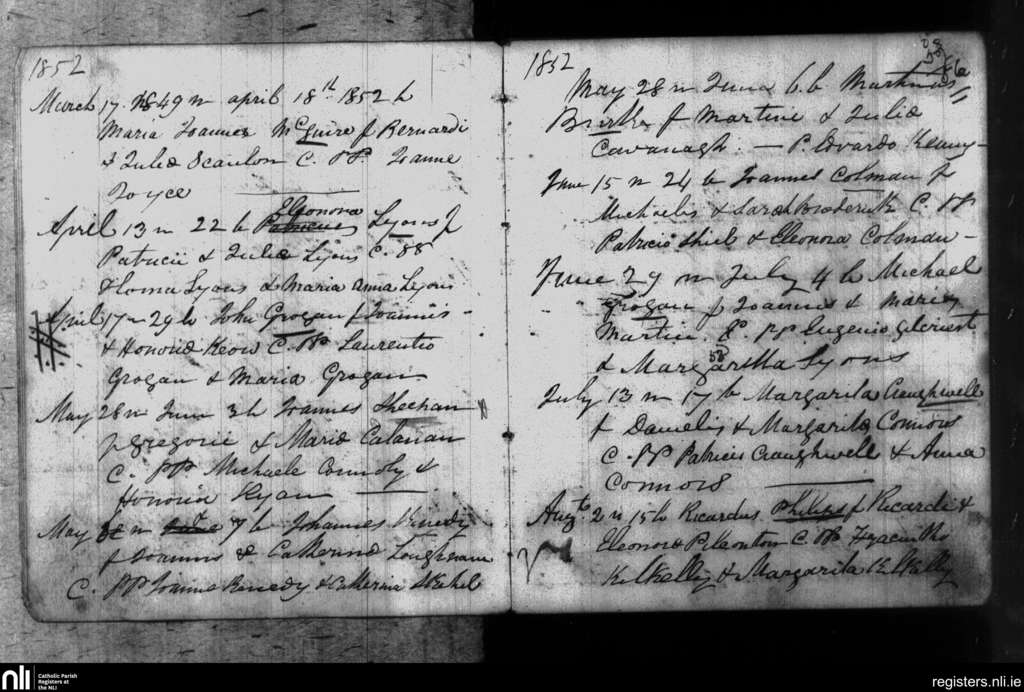 1852
March 17. n 1849 n april 18th 1852 b
Maria Joannes McGuire f Bernardi
& Juliæ Scanlon C. PP. Joanne
Joyce
Eleonora
April 13 n 22 b Patricius Lyons f
Patricii & Juliæ Lyons C. SS
Thoma Lyons & Maria Anna Lyons
April 17 n 29 b John Grogan f Joannis
& Honoriæ Keow C. PP Laurentio
Grogan & Maria Grogan
May 28 n June 3 b Joannes Sheehan
f Gregorii & Mariæ Calanan
C. PP Michaele Connoly &
Honoria Ryan
May n 7 b Johannes Kenedy
f Joannis & Catherinæ Loughnane
C. PP Joanne Kenedy & Catherina
1852
May 28 n June 6. b Martinus
Burke f Martini & Juliæ
Cavanagh. — P. Edvardo Keany
June 15 n 24 b Joannes Colman f
Michaelis & Sarah Broderick C. PP
Patricio Shiel & Eleonora Colman
June 29 n July 4 b Michael
Grogan f Joannis & Mariæ
Martin. C. PP Eugenio Gilcriest
& Margaritha Lyons
July 13 n 17 b Margarita Craughwell
f Danielis & Margaritæ Connors
C. PP Patricis Craughwell & Anna
Connors
Augt. 2 n 15 b Ricardus Philips f Ricardi &
Eleonoræ C. PP Hyacintho
Kilkelly & Margarita Kilkelly
nli
Catholic Parish
Registers at
the NLI
registers.nli.ie